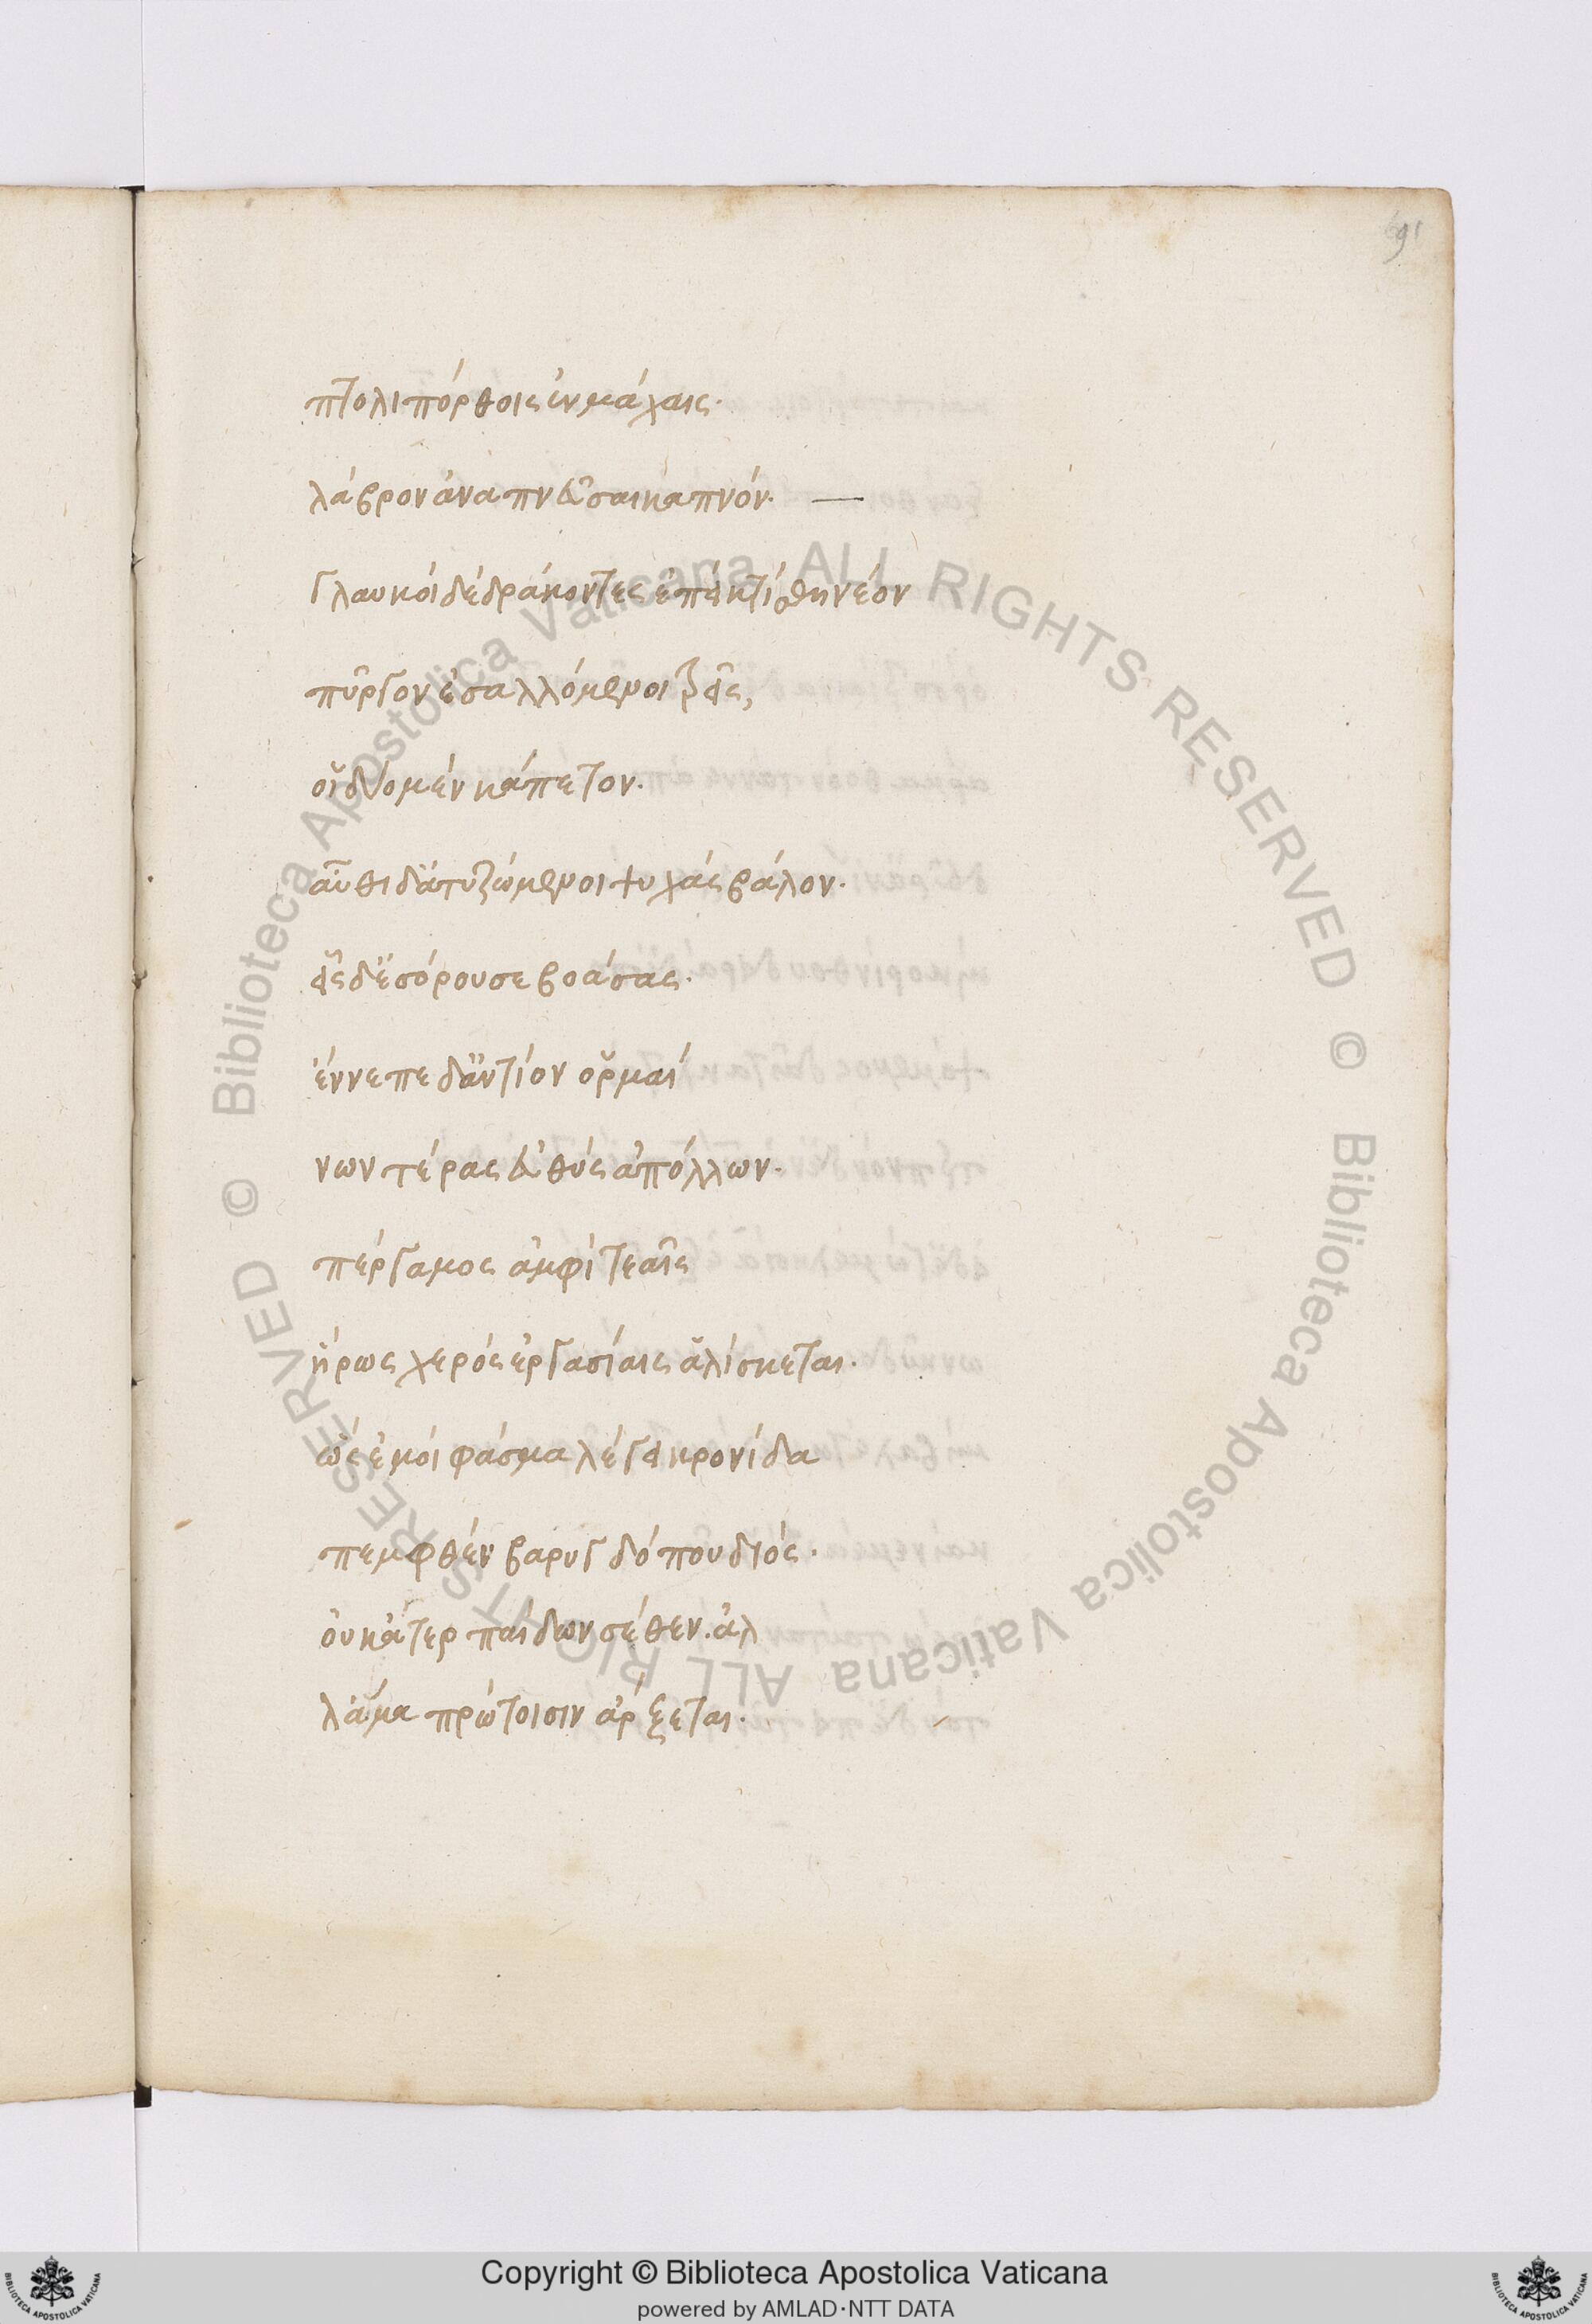 91
πτολιπόρθοις ἐν μάχαις·
λάβρον ἀναπνεῦσαι καπνόν· —
Γλαυκοὶ δὲ δράκοντες ἐπεὶ κτίσθη νέον
πῦργον ἐσαλλόμενοι τρεῖς,
οἵ δύο μὲν κάπετον·
αὖθι δ' ἀτυζόμενοι ψυχὰς βάλον·
εἷς δ' ἐσόρουσε βοάσας·
ἔννεπε δ' ἀντίον ὁρμαί
νων τέρας εὐθὺς ἀπόλλων·
πέργαμος ἀμφὶ τεαῖς
ἥρως χερὸς ἐργασίαις ἁλίσκεται·
ὡς ἐμοὶ φάσμα λέγει κρονίδα
πεμφθὲν βαρυγδόπου διός·
οὐκ ἄτερ παίδων σέθεν. ἀλ
λ' ἅμα πρώτοισιν ἄρξεται·
© Biblioteca Apostolica Vaticana ALL RIGHTS RESERVED © Biblioteca Apostolica Vaticana ALL RIGHTS RESERVED
Copyright © Biblioteca Apostolica Vaticana
powered by AMLAD·NTT DATA
BIBLIOTECA APOSTOLICA VATICANA
BIBLIOTECA APOSTOLICA VATICANA